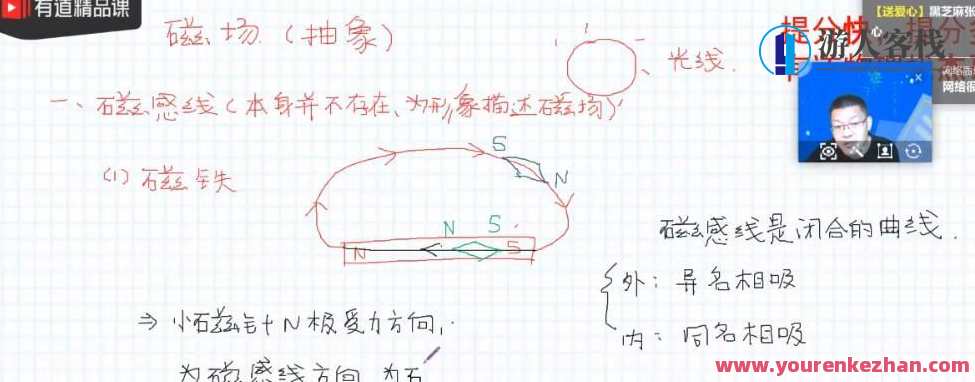 有道精品课
【送爱心】黑芝麻张
心
提分快
游人客栈
网络很
磁场(抽象)
光线.
一、磁感线(本身并不存在、为形象描述磁场)
(1) 磁铁
S
N
N S
N S
磁感线是闭合的曲线.
外: 异名相吸
内: 同名相吸
⇒ 小磁针N极受力方向,
为磁感线方向
www.yourenkezhan.com